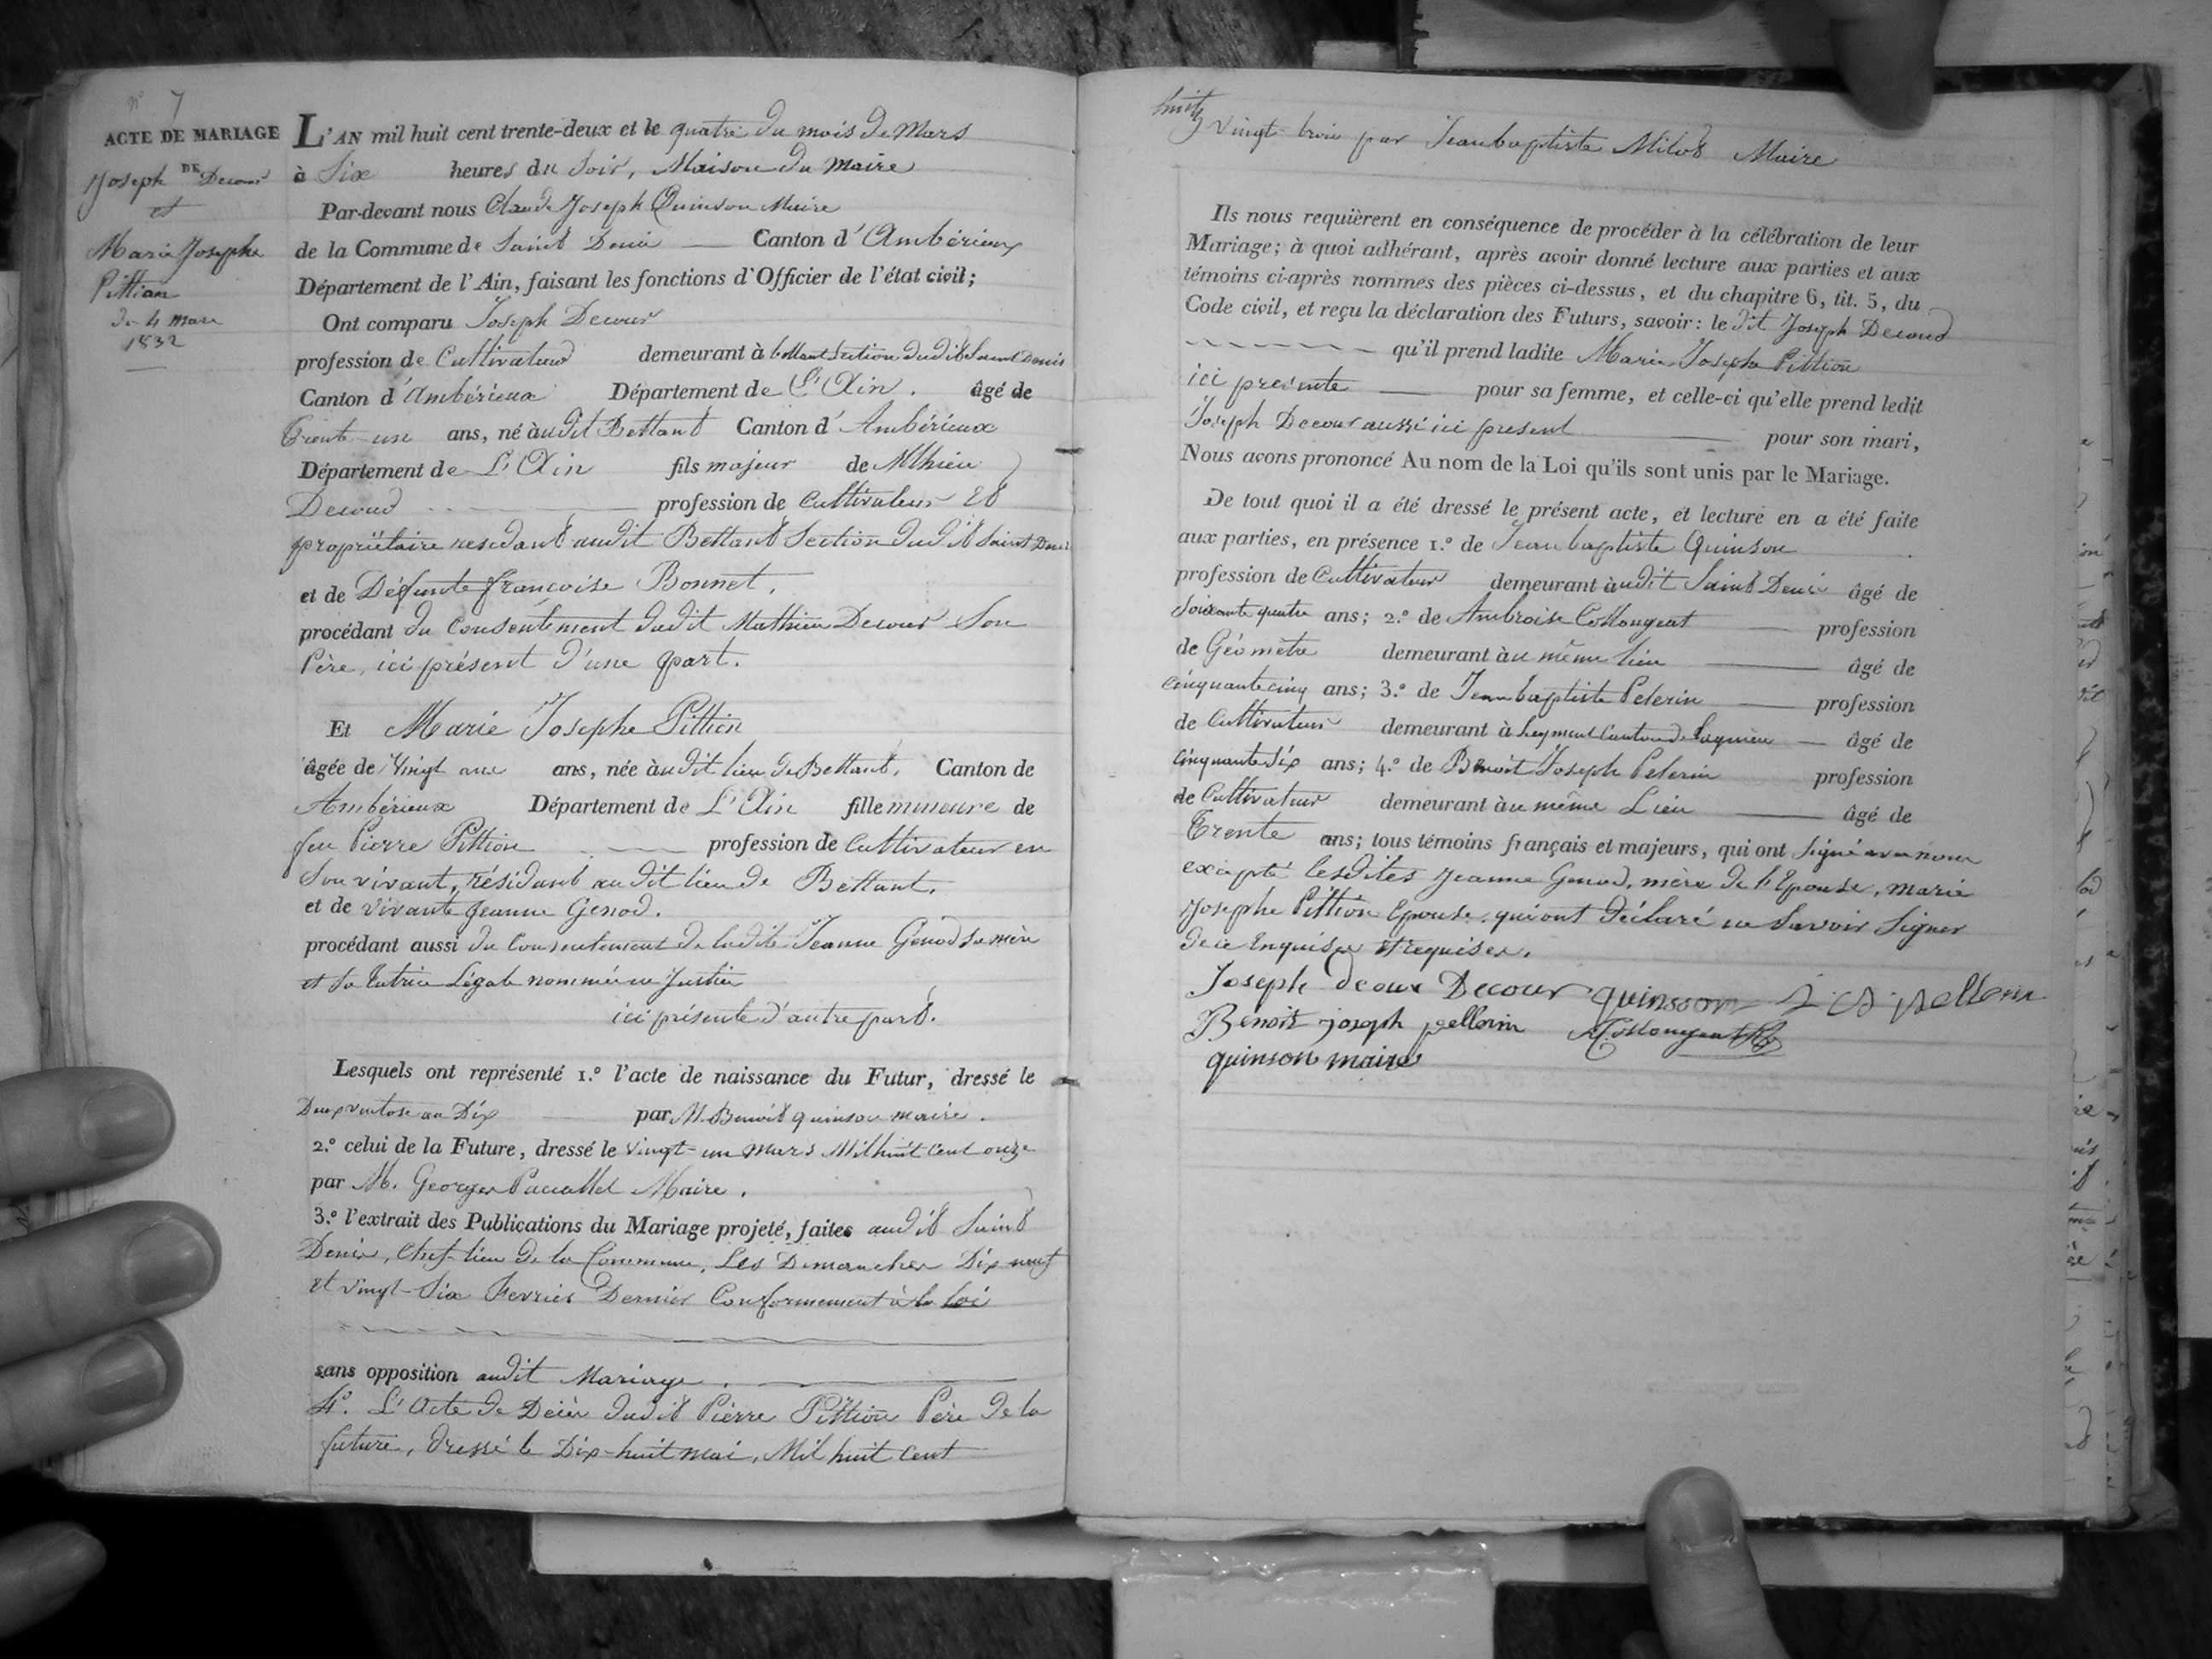 n° 7
ACTE DE MARIAGE
DE
Joseph Decour
et
Marie Josephe
Pittion
du 4 mars
1832
L'AN mil huit cent trente-deux et le quatre du mois de Mars
à Six heures du Soir, Maison du Maire
Par-devant nous Claude Joseph Quinson Maire
de la Commune de Saint Denis Canton d'Ambérieux
Département de l'Ain, faisant les fonctions d'Officier de l'état civil;
Ont comparu Joseph Decour
profession de Cultivateur demeurant à bettant Section dudit Saint Denis
Canton d'Ambérieux Département de L'Ain. âgé de
Trente-un ans, né audit Bettant Canton d'Ambérieux
Département de L'Ain fils majeur de Mthieu
Decour profession de Cultivateur Et
propriétaire residant audit Bettant Section dudit Saint Denis
et de Défunte françoise Bonnet,
procédant du Consentement dudit Mathieu Decour Son
Père, ici présent d'une part.
Et Marie Josephe Pittion
âgée de Vingt ans, née audit lieu de Bettant, Canton de
Ambérieux Département de L'Ain fille mineure de
feu Pierre Pittion profession de Cultivateur en
Son vivant, résidant audit lieu de Bettant.
et de vivante Jeanne Genod.
procédant aussi du Consentement de ladite Jeanne Genod sa mère
et sa tutrice Légale nommée en Justice
ici présente d'autre part.
Lesquels ont représenté 1.° l'acte de naissance du Futur, dressé le
Deux ventose an Dix par M. Benoit quinson maire.
2.° celui de la Future, dressé le vingt-un Mars Mil huit Cent onze
par M. Georges Maire.
3.° l'extrait des Publications du Mariage projeté, faites audit Saint
Denis, Chef-lieu de la Commune, Les Dimanches Dix neuf
et vingt-Six Fevrier Dernier Conformement à la loi
sans opposition audit Mariage.
4°. L'Acte de Décès dudit Pierre Pittion Père de la
future, dressé le Dix-huit mai, Mil huit Cent
vingt trois par Jean baptiste Milod Maire
Ils nous requièrent en conséquence de procéder à la célébration de leur
Mariage; à quoi adhérant, après avoir donné lecture aux parties et aux
témoins ci-après nommés des pièces ci-dessus, et du chapitre 6, tit. 5, du
Code civil, et reçu la déclaration des Futurs, savoir: le dit Joseph Decour
qu'il prend ladite Marie Josephe Pittion
ici presente pour sa femme, et celle-ci qu'elle prend ledit
Joseph Decour aussi ici present pour son mari,
Nous avons prononcé Au nom de la Loi qu'ils sont unis par le Mariage.
De tout quoi il a été dressé le présent acte, et lecture en a été faite
aux parties, en présence 1.° de Jean baptiste Quinson
profession de Cultivateur demeurant audit Saint Denis âgé de
Soixante quatre ans; 2.° de Ambroise Collongeat profession
de Géomètre demeurant au même lieu âgé de
cinquante cinq ans; 3.° de Jean baptiste Pelerin profession
de Cultivateur demeurant à Leyment Canton de Lagnieu âgé de
cinquante Six ans; 4.° de Benoit Joseph Pelerin profession
de Cultivateur demeurant au même Lieu âgé de
Trente ans; tous témoins français et majeurs, qui ont Signé avec nous
excepté lesdites Jeanne Genod, mère de l'Epouse, marie
Josephe Pittion Epouse, qui ont déclaré ne Savoir Signer
de ce Enquises et requises.
Joseph decour Decour quinson pellerin
Benoit joseph pellerin Collongeat
quinson maire